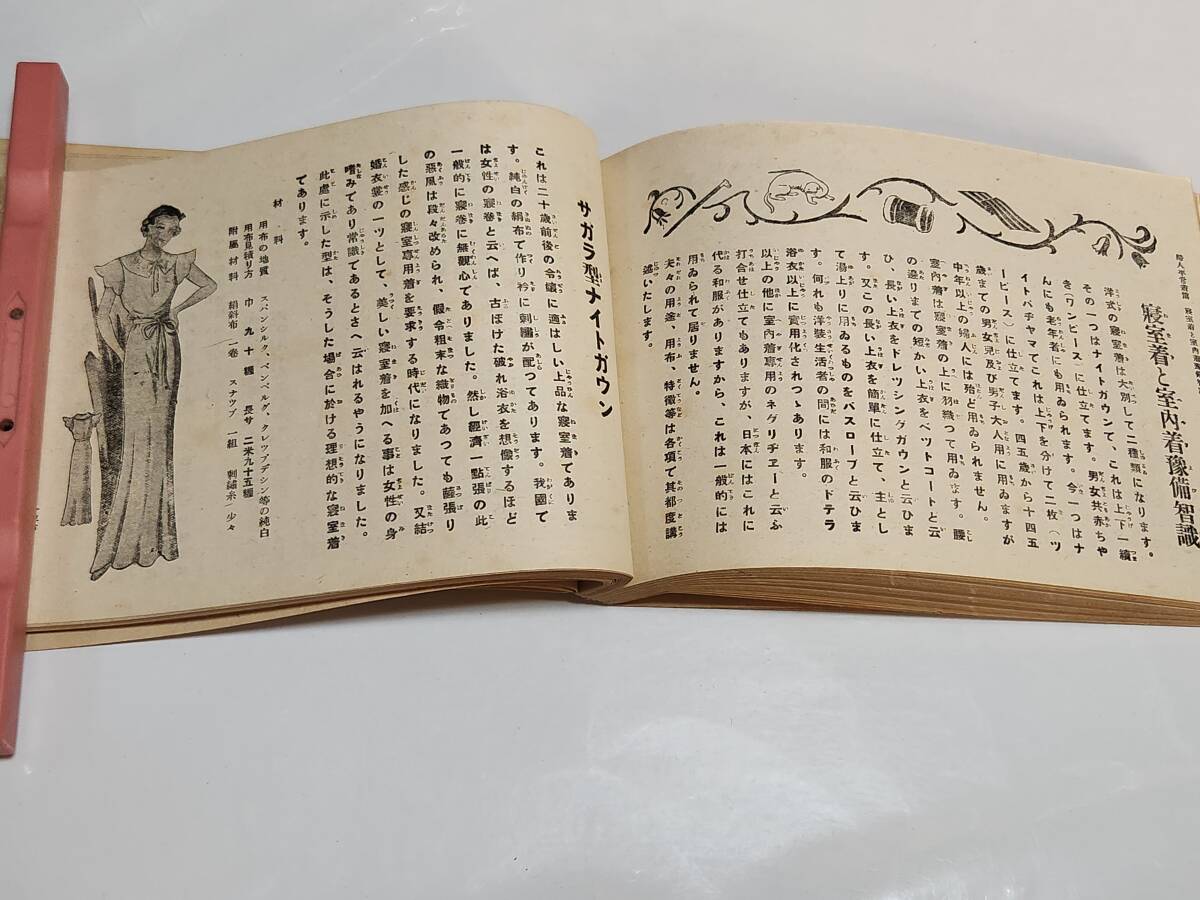 寢室着と室內着豫備智識
洋式の寢室着は大別して二種類になります。
その一つはナイトガウンて、これは上下一續
き(ワンピース)に仕立てます。男女共赤ちや
んにも老年者にも用ゐられます。今一つはナ
イトパヂヤマてこれは上下を分けて二枚(ツ
ーピース)に仕立てます。四五歲から十四五
歲までの男女兒及び男子大人用に用ゐますが
中年以上の婦人には殆ど用ゐられません。
室內着は寢室着の上に羽織つて用ゐます。腰
の邊りまでの短かい上衣をベツトコートと云
ひ、長い上衣をドレツシングガウンと云ひま
す。又この長い上衣を簡單に仕立て、主とし
て湯上りに用ゐるものをバスローブと云ひま
す。何れも洋裝生活者の間には和服のドテラ
浴衣以上に實用化されつゝあります。
以上の他に室內着專用のネグリヂエーと云ふ
打合せ仕立てもありますが、日本にはこれに
代る和服がありますから、これは一般的には
用ゐられて居りません。
夫々の用途、用布、特徵等は各項で其都度講
述いたします。
サガラ型ナイトガウン
これは二十歲前後の令孃に適はしい上品な寢室着でありま
す。純白の絹布で作り衿に刺繡が配つてあります。我國で
は女性の寢卷と云へば、古ぼけた破れ浴衣を想像するほど
一般的に寢卷に無觀心でありました。然し經濟一點張の此
の惡風は段々改められ、假令粗末な織物であつても薩張り
した感じの寢室專用着を要求する時代になりました。又結
婚衣裳の一ツとして、美しい寢室着を加へる事は女性の身
嗜みであり常識であるとさへ云はれるやうになりました。
此處に示した型は、そうした場合に於ける理想的な寢室着
であります。
材料
用布の地質 スパンシルク、ベンベルグ、クレツプデシン等の純白
用布見積り方 巾 九十糎 長サ 二米九十五糎
附屬材料 絹斜布 一卷 スナツプ 一組 刺繡糸 少々